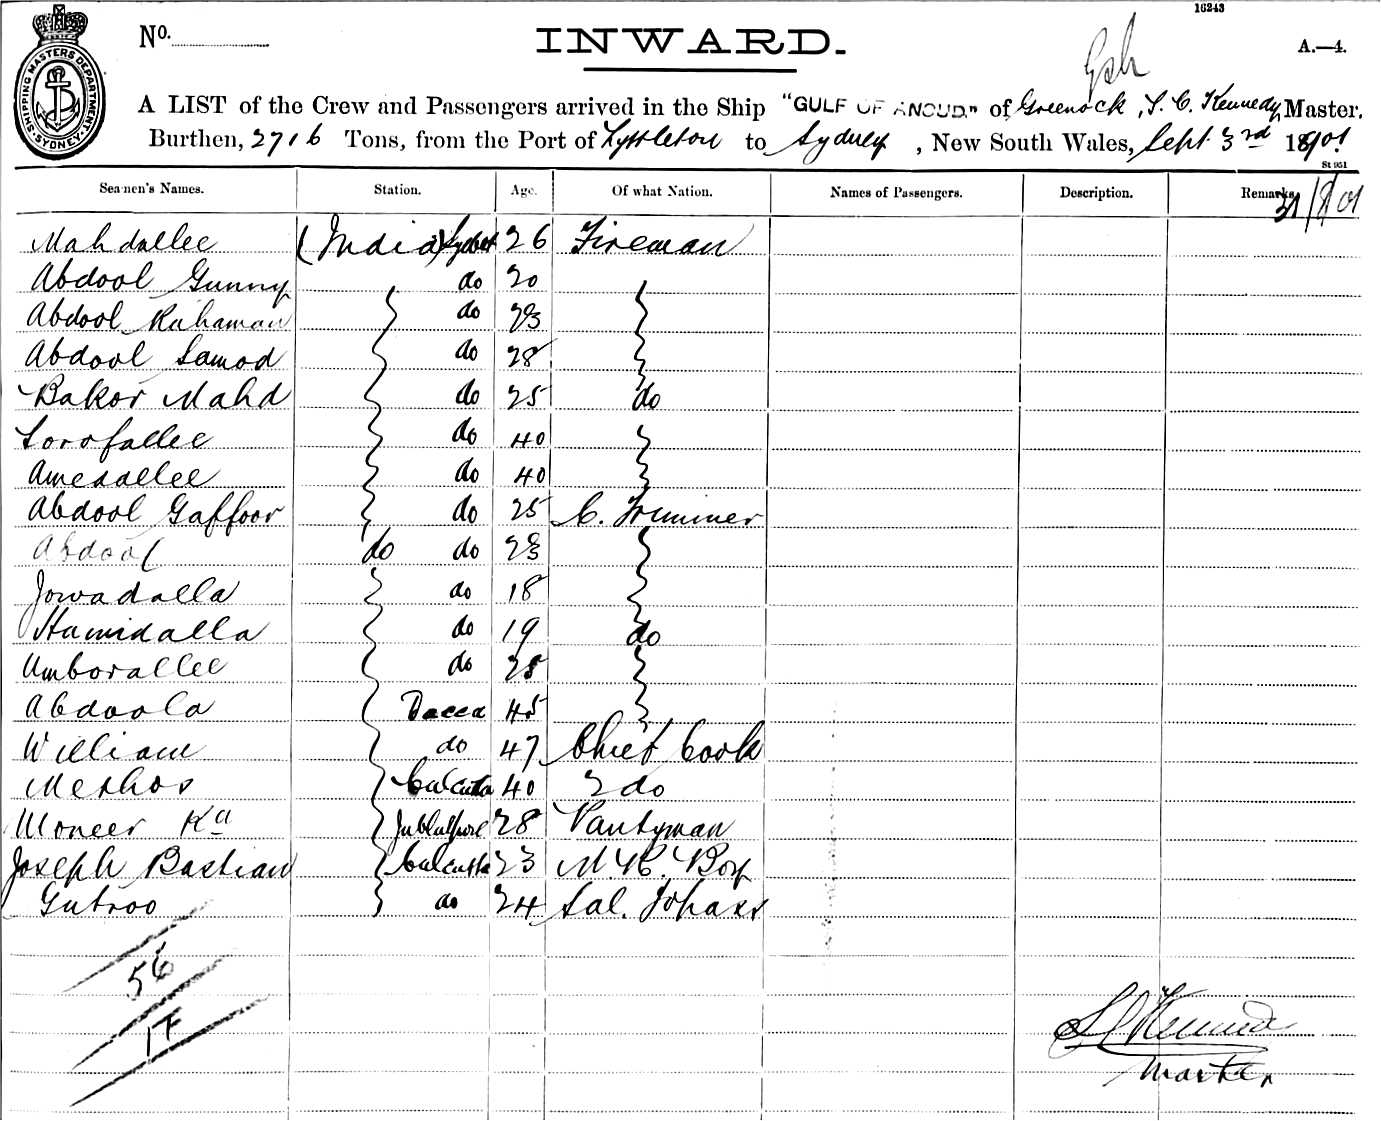 16243
No.
INWARD.
A.—4.
SHIPPING MASTERS DEPARTMENT. SYDNEY.
A LIST of the Crew and Passengers arrived in the Ship "GULF OF ANCUD" of Greenock, S. C. Kennedy, Master.
Burthen, 2716 Tons, from the Port of Lyttleton to Sydney, New South Wales, Sept 3rd 1901
St 951
Seamen's Names. Station. Age. Of what Nation. Names of Passengers. Description. Remarks.
Mahdallee (India) 26 Fireman
Abdool Gunny do 20
Abdool Rahaman do 23
Abdool Samod do 28
Bakor Mahd do 25 do
Sorofallee do 40
Amedallee do 40
Abdool Gaffoor do 25 C. Trimmer
Abdool do do 23
Jowadalla do 18
Hamidalla do 19 do
Amborallee do 28
Abdoola Dacca 45
William do 47 Chief Cook
Methos Calcutta 40 2 do
Moneer Ka Jubbulpore 28 Pantryman
Joseph Bastian Calcutta 23 M. R. Boy
Gutroo do 24 Sal. Topass
56
17
S C Kennedy
Master